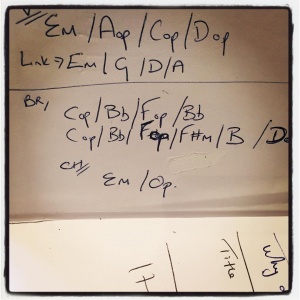 V// Em / Aop / Cop / Dop
Link → Em / G / D / A
BR, Cop / Bb / Fop / Bb
Cop / Bb / Fop / F#m / B / Do
CH// Em / Op.
Why
Title
17